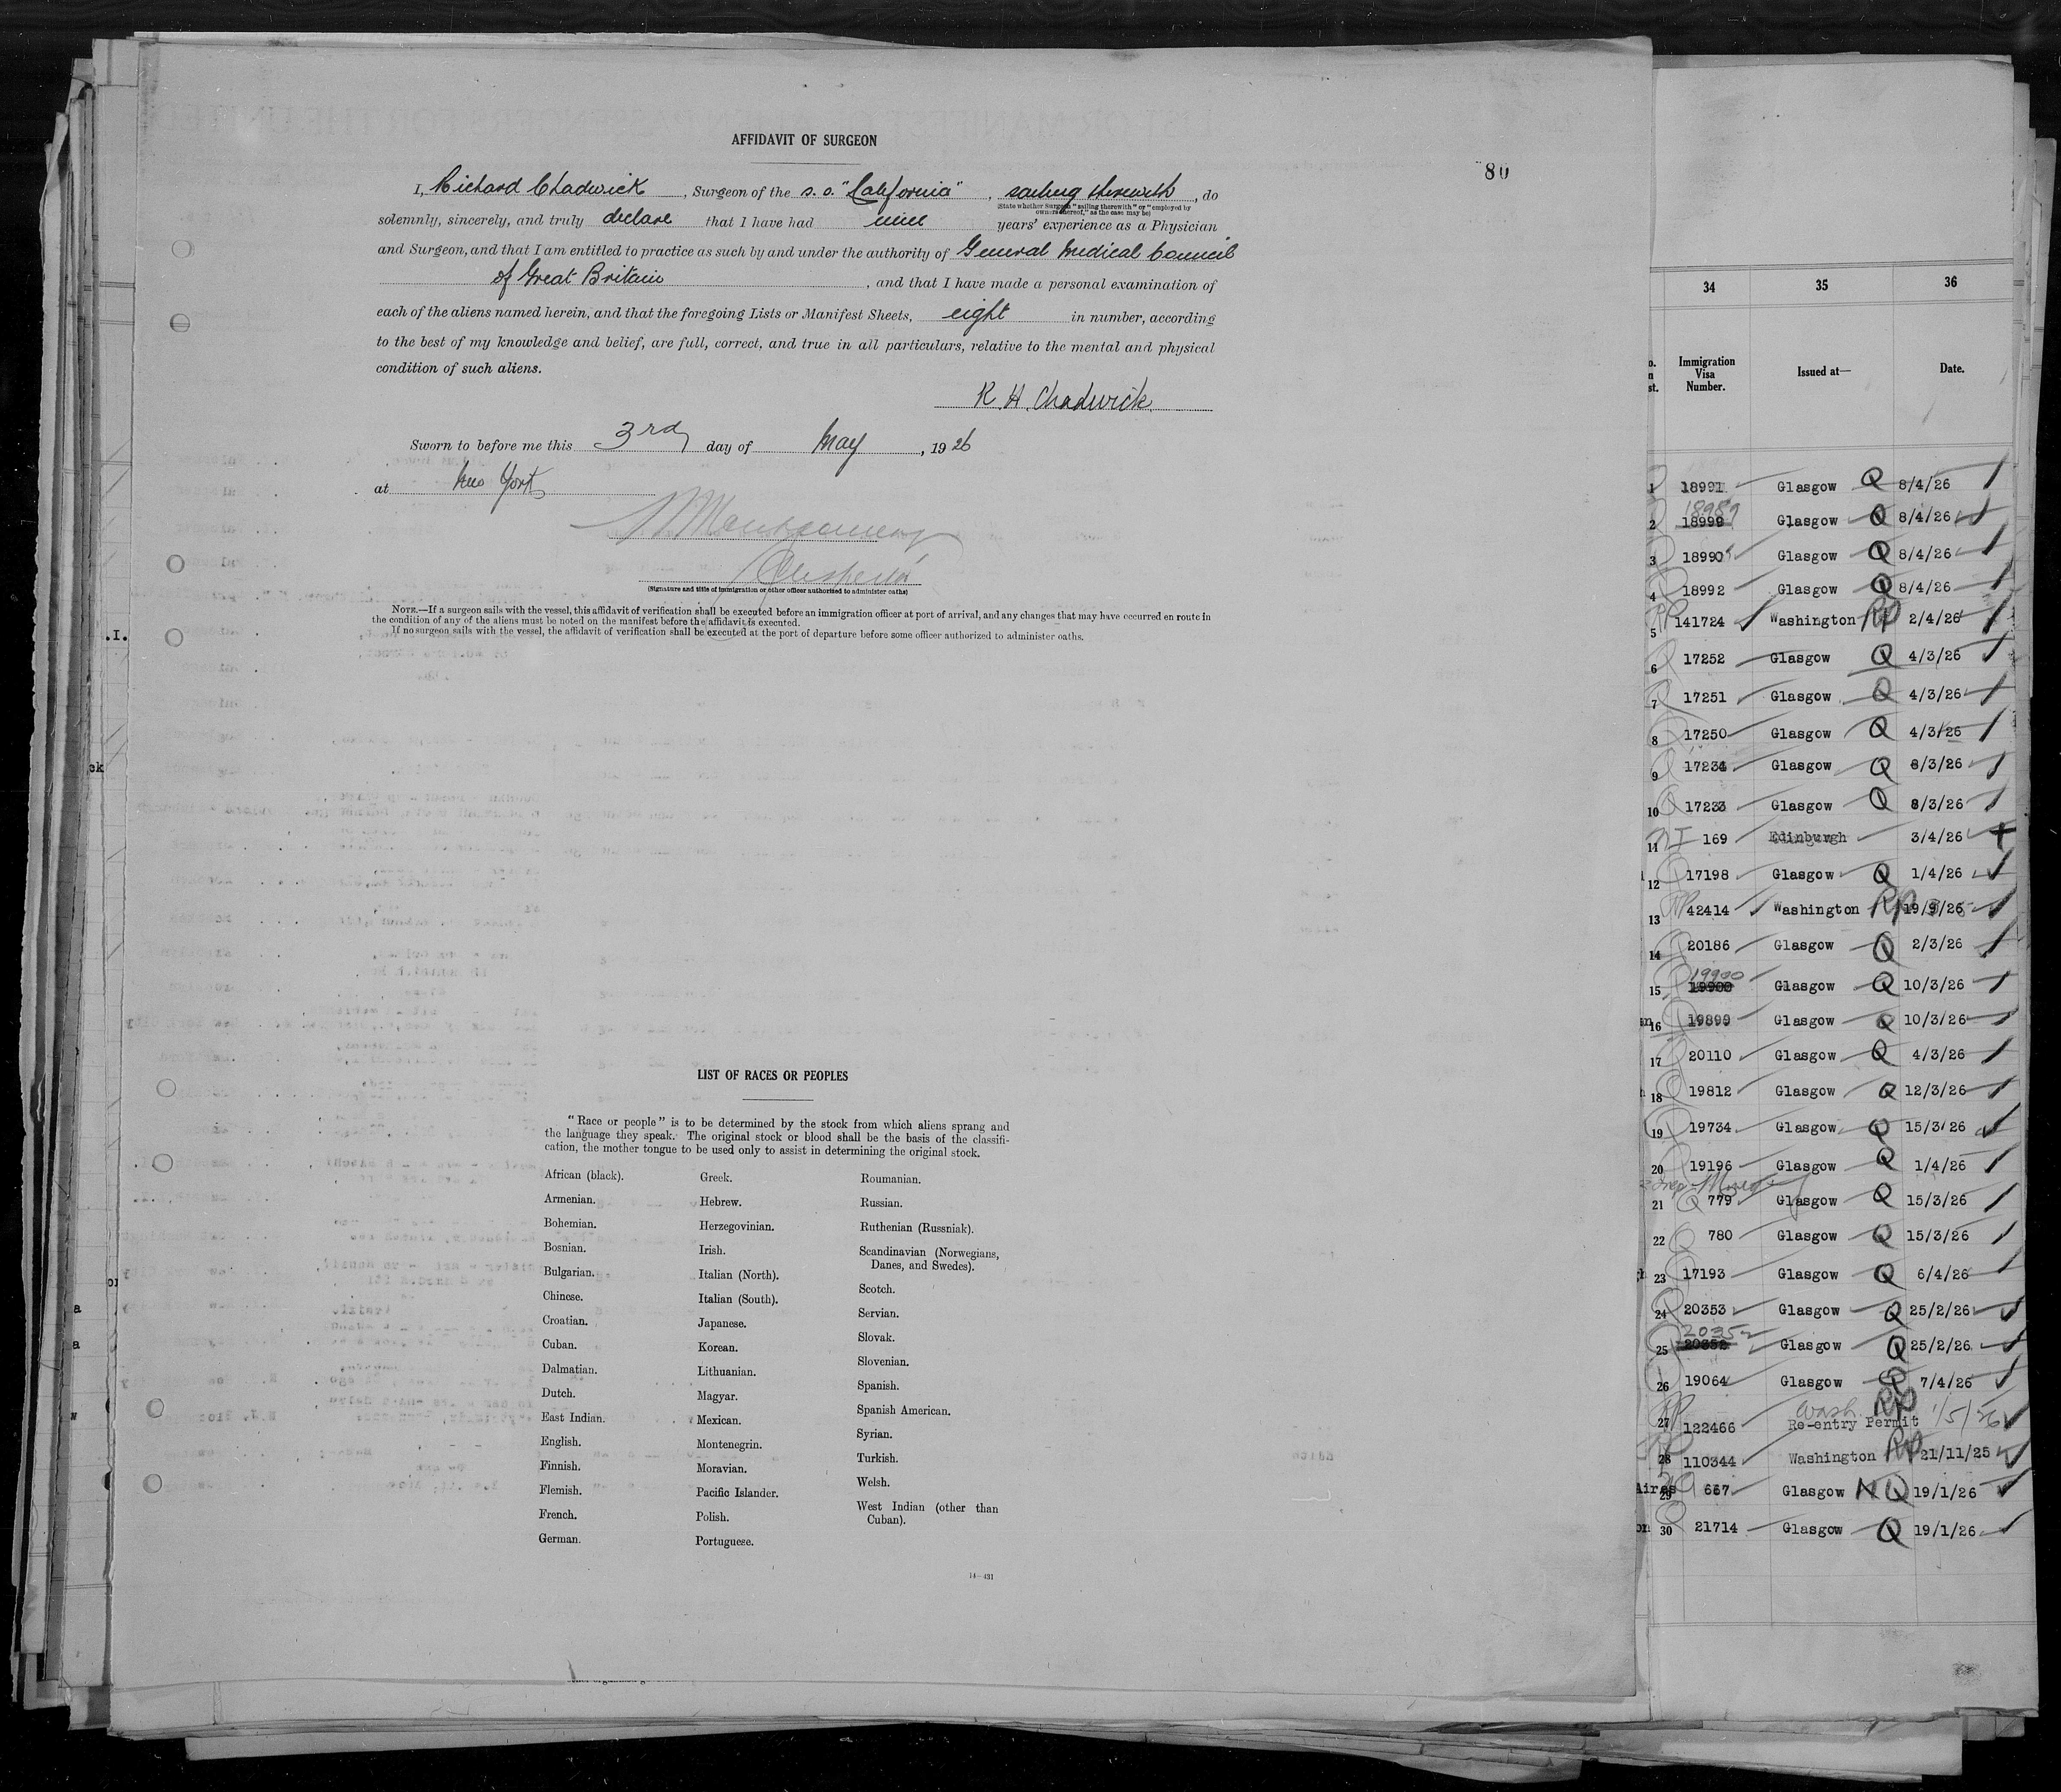 AFFIDAVIT OF SURGEON
80
I, Richard Chadwick, Surgeon of the s.s. "California", sailing therewith, do
(State whether Surgeon "sailing therewith" or "employed by
owners thereof," as the case may be)
solemnly, sincerely, and truly declare that I have had nine years' experience as a Physician
and Surgeon, and that I am entitled to practice as such by and under the authority of General Medical Council
of Great Britain, and that I have made a personal examination of
each of the aliens named herein, and that the foregoing Lists or Manifest Sheets, eight in number, according
to the best of my knowledge and belief, are full, correct, and true in all particulars, relative to the mental and physical
condition of such aliens.
R. H. Chadwick
Sworn to before me this 3rd day of May, 1926
at New York
(Signature and title of immigration or other officer authorized to administer oaths)
NOTE.—If a surgeon sails with the vessel, this affidavit of verification shall be executed before an immigration officer at port of arrival, and any changes that may have occurred en route in
the condition of any of the aliens must be noted on the manifest before the affidavit is executed.
If no surgeon sails with the vessel, the affidavit of verification shall be executed at the port of departure before some officer authorized to administer oaths.
LIST OF RACES OR PEOPLES
"Race or people" is to be determined by the stock from which aliens sprang and
the language they speak. The original stock or blood shall be the basis of the classifi-
cation, the mother tongue to be used only to assist in determining the original stock.
African (black).
Armenian.
Bohemian.
Bosnian.
Bulgarian.
Chinese.
Croatian.
Cuban.
Dalmatian.
Dutch.
East Indian.
English.
Finnish.
Flemish.
French.
German.
Greek.
Hebrew.
Herzegovinian.
Irish.
Italian (North).
Italian (South).
Japanese.
Korean.
Lithuanian.
Magyar.
Mexican.
Montenegrin.
Moravian.
Pacific Islander.
Polish.
Portuguese.
Roumanian.
Russian.
Ruthenian (Russniak).
Scandinavian (Norwegians,
Danes, and Swedes).
Scotch.
Servian.
Slovak.
Slovenian.
Spanish.
Spanish American.
Syrian.
Turkish.
Welsh.
West Indian (other than
Cuban).
14—431
34 35 36
Immigration
Visa
Number.
Issued at—
Date.
1 18991 Glasgow Q 8/4/26
18989
2 18999 Glasgow Q 8/4/26
3 18990 Glasgow Q 8/4/26
4 18992 Glasgow Q 8/4/26
5 RP 141724 Washington RP 2/4/26
6 17252 Glasgow Q 4/3/26
7 17251 Glasgow Q 4/3/26
8 17250 Glasgow Q 4/3/26
9 17234 Glasgow Q 8/3/26
10 17233 Glasgow Q 8/3/26
11 169 Edinburgh 3/4/26
12 17198 Glasgow Q 1/4/26
13 RP 42414 Washington RP 19/9/26
14 20186 Glasgow Q 2/3/26
19900
15 19900 Glasgow Q 10/3/26
16 19899 Glasgow Q 10/3/26
17 20110 Glasgow Q 4/3/26
18 19812 Glasgow Q 12/3/26
19 19734 Glasgow Q 15/3/26
20 19196 Glasgow Q 1/4/26
21 Q 779 Glasgow Q 15/3/26
22 780 Glasgow Q 15/3/26
23 17193 Glasgow Q 6/4/26
24 20353 Glasgow Q 25/2/26
20352
25 20352 Glasgow Q 25/2/26
26 19064 Glasgow Q 7/4/26
Wash. RP
27 RP 122466 Re-entry Permit 1/5/26
28 RP 110344 Washington RP 21/11/25
29 667 Glasgow NQ 19/1/26
30 21714 Glasgow Q 19/1/26